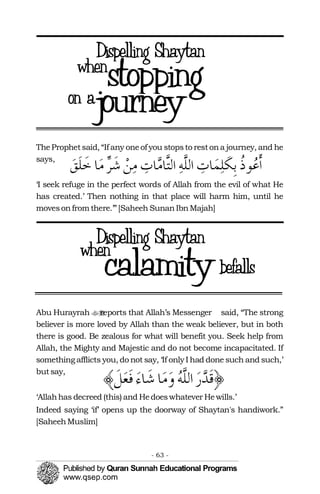 Dispelling Shaytan
when stopping
on a journey
The Prophet said, “If any one of you stops to rest on a journey, and he
says,
أَعُوذُ بِكَلِمَاتِ اللَّهِ التَّامَّاتِ مِنْ شَرِّ مَا خَلَقَ
‘I seek refuge in the perfect words of Allah from the evil of what He
has created.’ Then nothing in that place will harm him, until he
moves on from there.’” [Saheeh Sunan Ibn Majah]
Dispelling Shaytan
when
calamity befalls
Abu Hurayrah reports that Allah’s Messenger said, “The strong
believer is more loved by Allah than the weak believer, but in both
there is good. Be zealous for what will benefit you. Seek help from
Allah, the Mighty and Majestic and do not become incapacitated. If
something afflicts you, do not say, ‘If only I had done such and such,’
but say,
﴿قَدَّرَ اللَّهُ وَمَا شَاءَ فَعَلَ﴾
‘Allah has decreed (this) and He does whatever He wills.’
Indeed saying ‘if’ opens up the doorway of Shaytan's handiwork.”
[Saheeh Muslim]
- 63 -
Published by Quran Sunnah Educational Programs
www.qsep.com